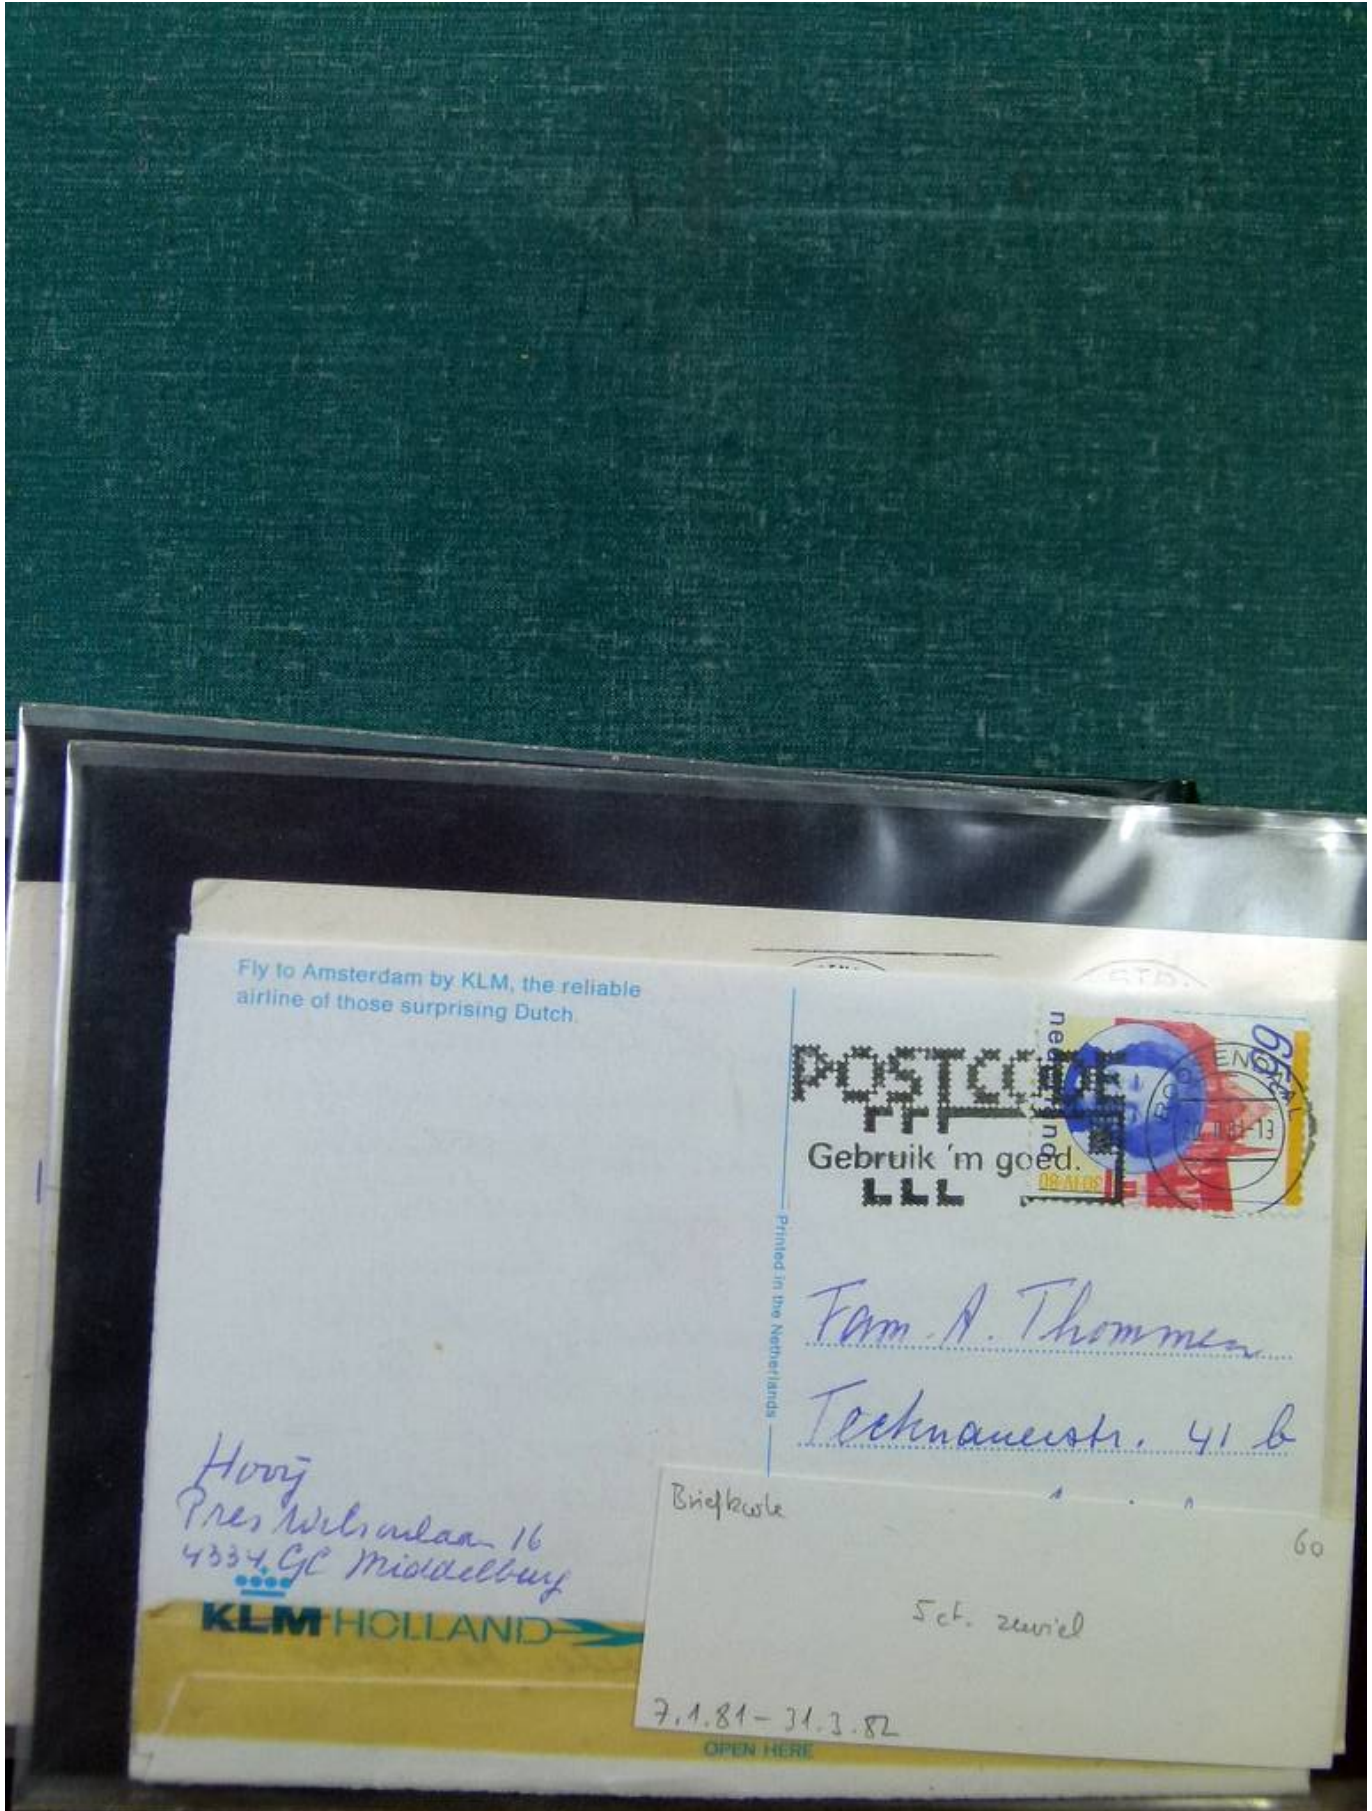 Fly to Amsterdam by KLM, the reliable
airline of those surprising Dutch.
POSTCODE
Gebruik 'm goed.
nederland
65
30 IV 80
ROOSENDAAL
Printed in the Netherlands
Fam. A. Thommen
Tecknauerstr. 41 b
Hooij
Pres Wilsonlaan 16
4334 GC Middelburg
KLM HOLLAND
Briefkarte
60
5 ct. zuviel
7.1.81 – 31.3.82
OPEN HERE